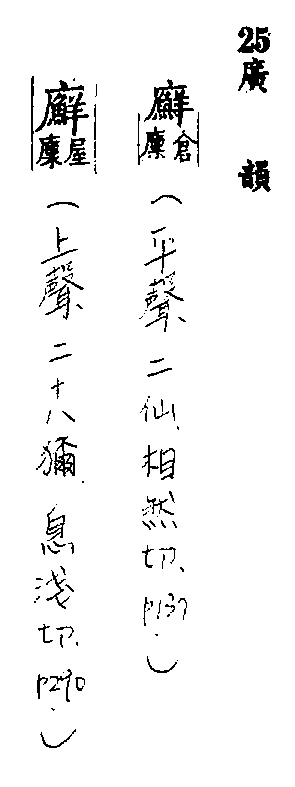 25廣韻
廯倉廩(平聲二仙、相然切、p137.)
廯屋廩(上聲二十八獮、息淺切、p290.)